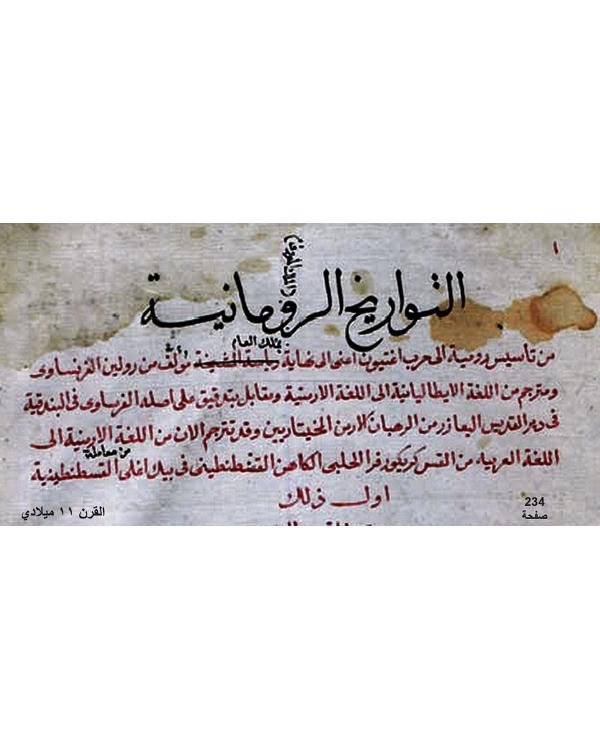 ١
التواريخ الرومانية
بملك العام
من تأسيس رومية الى حرب اغتيون اعنى الى نهاية رياسة المشيخة مؤلف من رولين الفرنساوى
ومترجم من اللغة الايطاليانية الى اللغة الارمنية ومقابل بتدقيق على اصله الفرنساوى فى البندقية
فى دير القديس العازر من الرهبان الارمن المخيتاريين وقد تترجم الان من اللغة الارمنية الى
من معاملة
اللغة العربية من القس كريكور فر الحلبى الكاهن القسطنطينى فى بيك اغلى القسطنطينية
اول ذلك
234
صفحة
القرن ١١ ميلادي